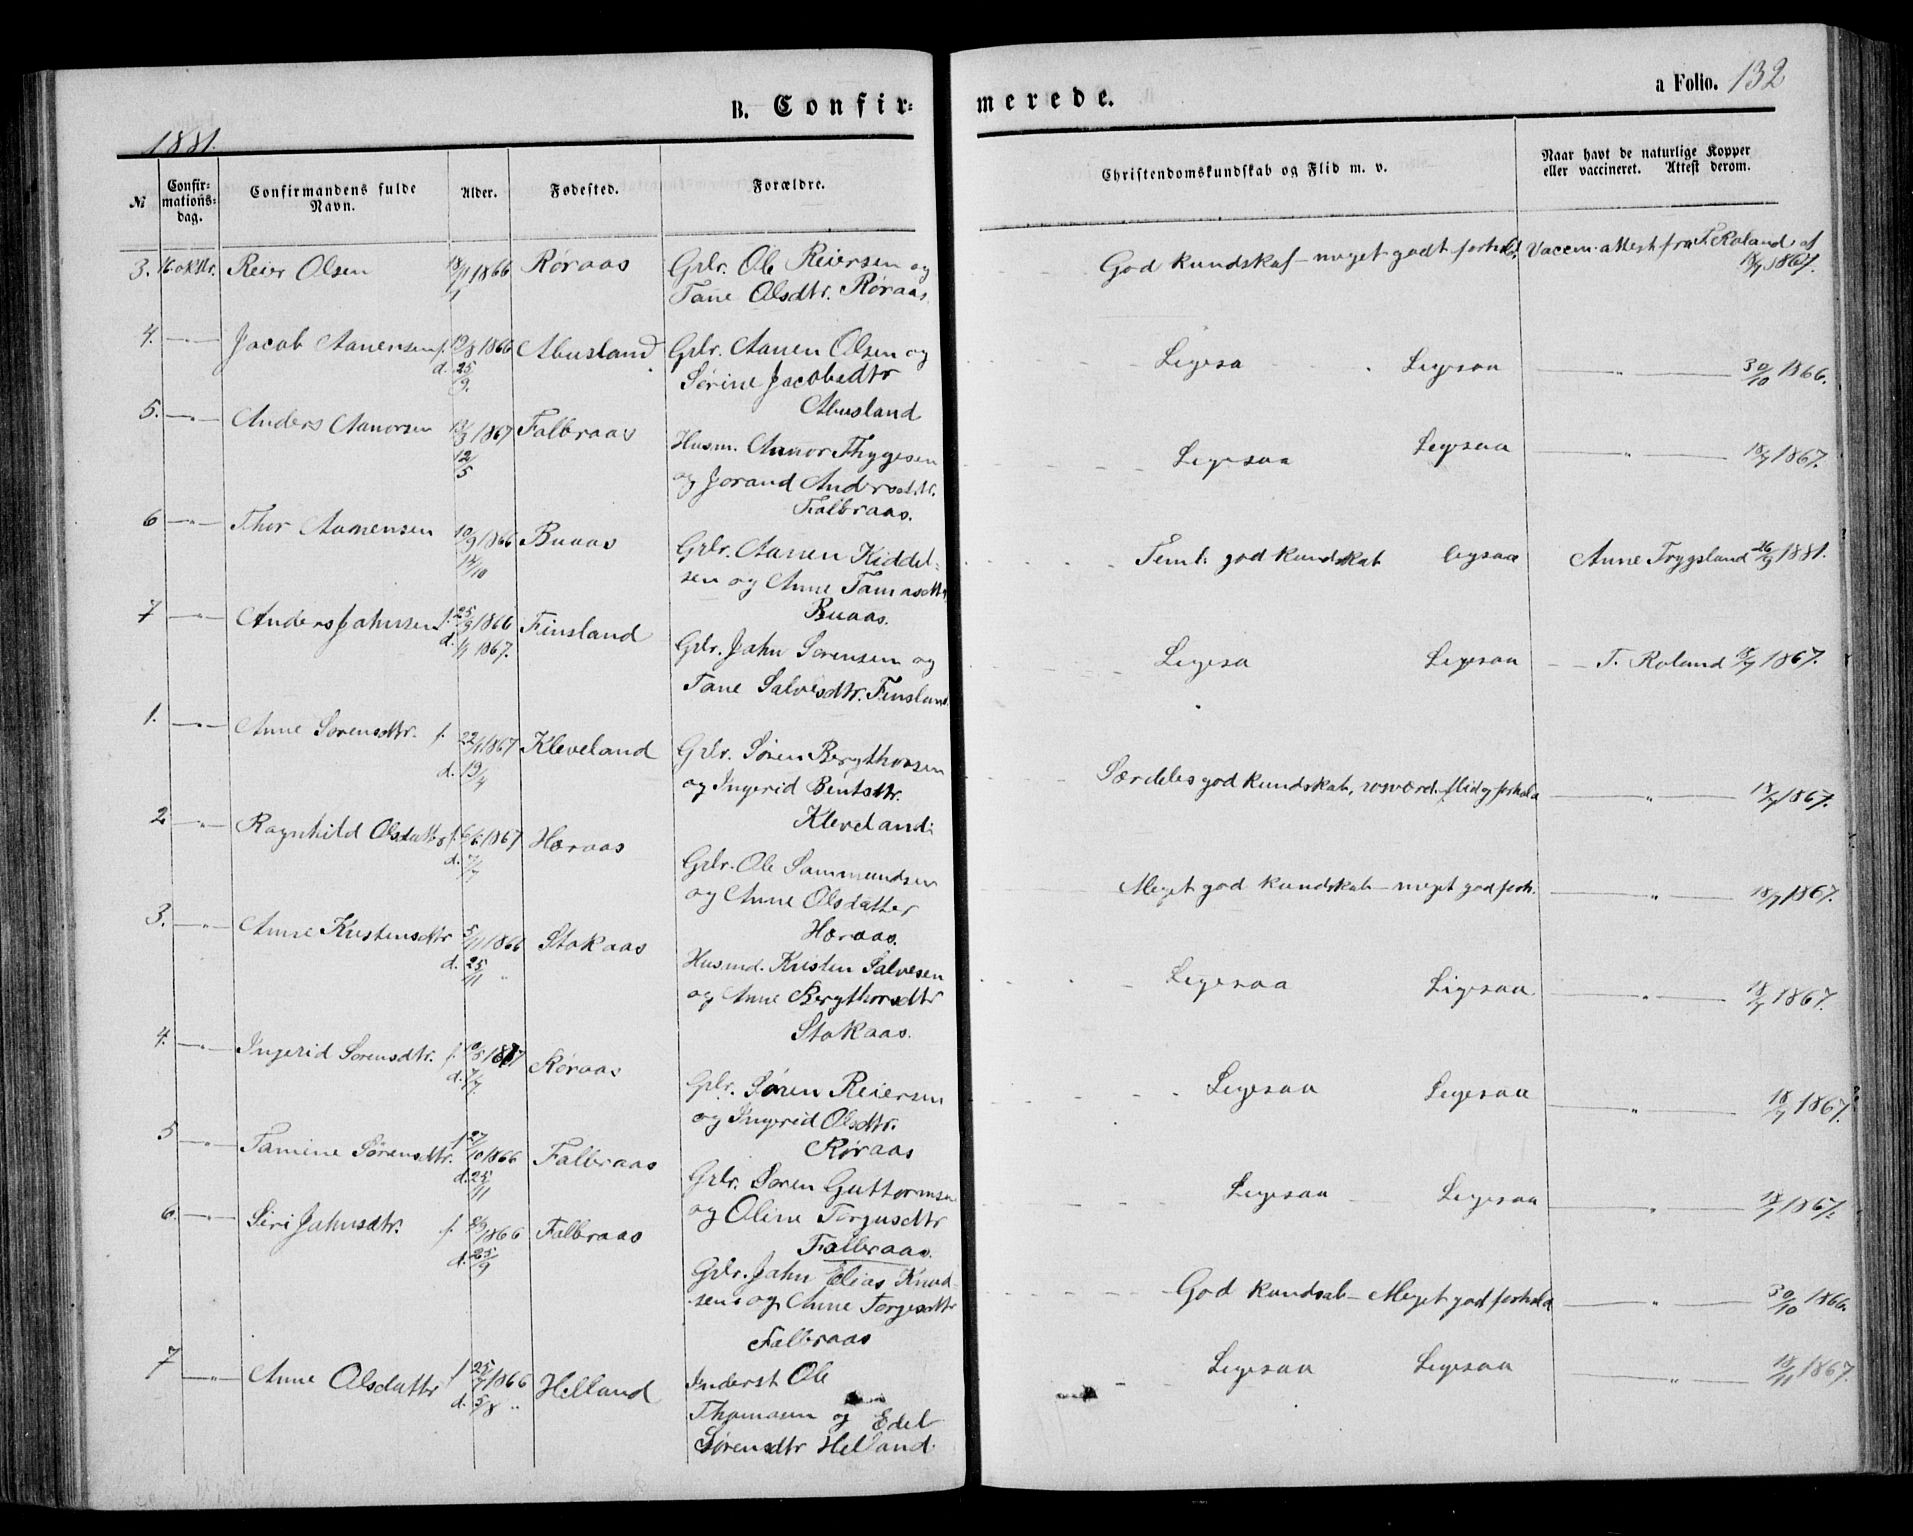 B. Confir-
merede.
a Folio. 132
1881.
№
Confir-
mations-
dag.
Confirmandens fulde
Navn.
Alder.
Fødested.
Forældre.
Christendomskundskab og Flid m. v.
Naar havt de naturlige Kopper
eller vaccineret. Attest derom.
3. 16 oktbr. Reier Olsen 1866 Røraas Gplr. Ole Reiersen og
Tane Olsdtr. Røraas.
God kundskab - meget godt forhold. Vaccin. attest fra T. Roland af
18/7 1867.
4. —"— Jacob Aanensen f. 19/8 1866 Abusland Gplr. Aanen Olsen og
d. 25/9. Sørine Jacobsdtr
Abusland
Ligesaa Ligesaa —"— 30/10 1866.
5. —"— Anders Aanorsen 1867 Falbraas Husm. Aanor Thygesen
12/5 og Jorand Andersdtr.
Falbraas.
Ligesaa Ligesaa —"— 18/7 1867.
6 —"— Thor Aanensen 10/9 1866 Buaas Gplr. Aanen Kiddel-
14/10 sen og Anne Tamasdtr.
Buaas.
Teml. god kundskab ligsaa Anne Trygsland 26/9 1881.
7 —"— Anders Jahnsen f. 25/9 1866 Finsland Gplr. Jahn Sørensen og
d. 1/1 1867. Tane Salvesdtr. Finsland
Ligesa Ligesaa T. Roland 18/7 1867.
1. —"— Anne Sørensdtr. f. 22/1 1867 Kleveland Gplr. Søren Bergthorsen
d. 19/4 og Ingerid Bentsdtr.
Kleveland.
Særdeles god kundskab, rosværd. flid og forhold —"— 18/7 1867.
2 —"— Ragnhild Olsdatter f. 6/6 1867 Høraas Gplr. Ole Sammundsen
d. 7/7 og Anne Olsdatter
Høraas.
Meget god kundskab - meget god forh. —"— 18/7 1867.
3. —"— Anne Kristensdtr 5/11 1866 Stokaas Husmd. Kristen Salvesen
d. 25/11 " og Anne Bergthorsdtr
Stokaas.
Ligesaa Ligesaa —"— 18/7 1867.
4. —"— Ingerid Sørensdtr. f. 1867 Røraas Gplr. Søren Reiersen
d. 7/7. og Ingerid Olsdtr.
Røraas
Ligesaa Ligesaa —"— 18/7 1867.
5 —"— Tamine Sørensdtr. f 27/10 1866 Falbraas Gplr. Søren Guttormsen
d. 25/11 og Oline Torgusdtr
Falbraas.
Ligesaa Ligesaa —"— 18/7 1867.
6. —"— Siri Jahnsdtr. f. 1866 Falbraas Gplr. Jahn Elias Knud-
d. 25/9 sen og Anne Torgesdtr
Falbraas
God kundsab - Meget god forhold —"— 30/10 1866.
7 —"— Anne Olsdattr f 25/7 1866 Helland Inderst Ole
d. 5/8 " Thomasen og Edel
Sørensdtr Helland.
Ligesaa Ligesaa —"— 18/11 1867.